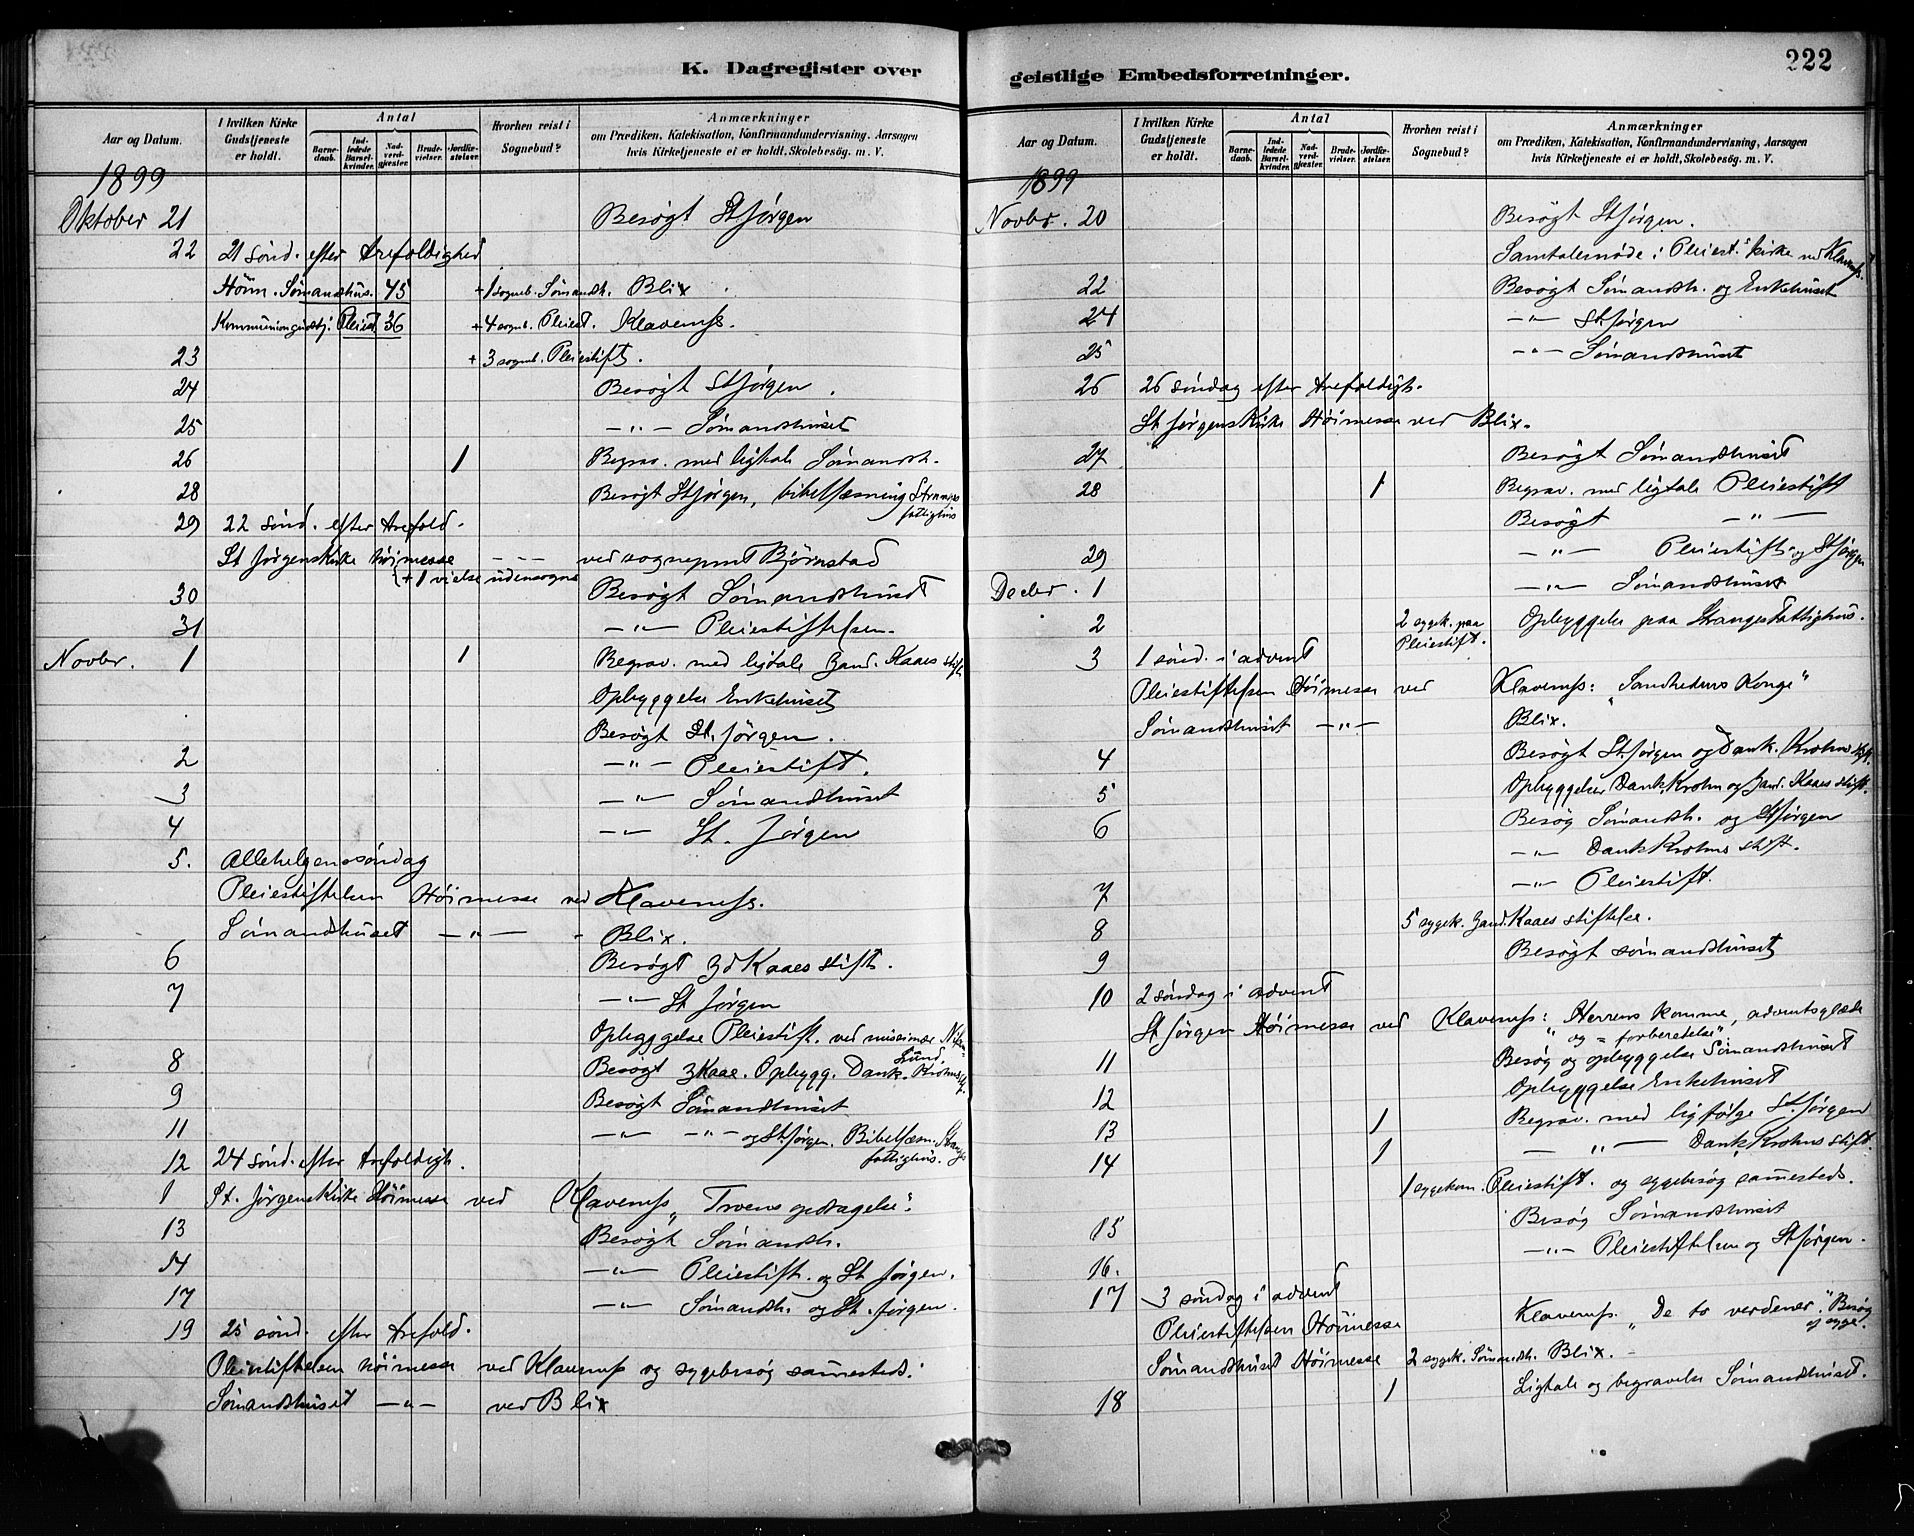 K. Dagregister over
Aar og Datum.
I hvilken Kirke Gudstjeneste er holdt.
Antal
Barnedaab.
Indledede Barselkvinder.
Nadverdgjester.
Brudevielser.
Jordfæstelser.
Hvorhen reist i Sognebud?
Anmærkninger
om Prædiken, Katekisation, Konfirmandundervisning, Aarsagen
hvis Kirketjeneste ei er holdt, Skolebesøg. m. V.
1899
Oktober 21 Besøgt St Jørgen
22 21 sönd. efter trefoldighed
Höim. Sömandshus. 45 + 1 sogneb. Sömandh. Blix
Kommuniongudstj. Pleiest. 36 + 4 sogneb. Pleiest. Klavenss.
23 + 3 sogneb. Pleiestift.
24 Besøgt St Jørgen.
25 — " — Sömandshuset
26 1 Begrav. med ligtale Sömandsh.
28 Besøgt St Jørgen, bibellæsning Stranges
fattighus
29 22 sönd. efter trefold.
St Jørgenskirke höimesse - - - ved sogneprest Bjørnstad
{+ 1 vielse udensogns
30 Besøgt Sömandshuset
31 — " — Pleiestiftelsen.
Novbr. 1 1 Begrav. med ligtale Zand. Kaaes stift
Opbyggelse Enkehuset
Besøgt St. Jørgen.
2 — " — Pleiestift.
3 — " — Sömandshuset
4 — " — St. Jørgen
5. Allehelgensöndag
Pleiestiftelsen Höimesse ved Klavenss.
Sömandshuset — " — Blix.
6 Besøgt Zd Kaaes stift.
7 — " — St Jørgen
Opbyggelse Pleiestift. ved missionær
8 Besøgt Z Kaae. Opbygg. Dank. Krohns
9 Besøgt Sömandshuset
11 — " — — " — og St Jørgen. Bibellæsn. Stranges
fattighus.
12 24 sönd. efter trefoldigh.
1 St. Jørgenskirke Höimesse ved Klavenss „Troens opdragelse".
13 Besøgt Sömandsh.
14 — " — Pleiestift. og St Jørgen.
17 — " — Sömandsh. og St. Jørgen.
19 25 sönd. efter trefold.
Pleiestiftelsen höimesse ved Klavenss og sygebesøg sammesteds.
Sömandshuset — " — ved Blix
geistlige Embedsforretninger.
222
Aar og Datum.
I hvilken Kirke Gudstjeneste er holdt.
Antal
Barnedaab.
Indledede Barselkvinder.
Nadverdgjester.
Brudevielser.
Jordfæstelser.
Hvorhen reist i Sognebud?
Anmærkninger
om Prædiken, Katekisation, Konfirmandundervisning, Aarsagen
hvis Kirketjeneste ei er holdt, Skolebesøg. m. V.
1899
Novbr. 20 Besøgt St Jørgen.
Samtalemöde i Pleiest. kirke ved Klavenss.
22 Besøgt Sömandsh. og Enkehuset
24 — " — St Jørgen
25 — " — Sömandshuset
26 26 söndag efter trefoldigh.
St Jørgenskirke Höimesse ved Blix.
27 Besøgt Sömandshuset
28 1 Begrav. med ligtale Pleiestift
Besøgt — " —
29 — " — Pleiestift. og St Jørgen
Decbr. 1 — " — Sömandshuset
2 2 sygek. paa Pleiestift. Opbyggelse paa Stranges Fattighus.
3 1 sönd. i advent
Pleiestiftelsen Höimesse ved Klavenss: „Sandhedens Konge"
Sömandshuset — " — Blix.
4 Besøgt St Jørgen og Dank. Krohns stift.
5 Opbyggelse Dank. Krohn og Zand. Kaaes stift.
6 Besøg Sömandsh. og St Jørgen
— " — Dank Krohns stift.
7 — " — Pleiestift.
8 5 sygek. Zand. Kaaes stiftelse.
9 Besøgt sömandshuset
10 2 söndag i advent
St Jørgen Höimesse ved Klavenss: „Herrens komme, adventsglæde
og = forberedelse"
11 Besøg og opbyggelse Sömandshuset
12 Opbyggelse Enkehuset
13 1 Begrav. med ligfølge St Jørgen
14 1 — " — Dank Krohns stift.
1 sygekom. Pleiestift. og sygebesøg sammesteds.
15 Besøg Sömandshuset
16. — " — Pleiestiftelsen og St Jørgen.
17 3 söndag i advent
Pleiestiftelsen Höimesse Klavenss. „De to verdener". Besøg
Sömandshuset Höimesse 2 sygek. Sömandh. Blix. -
18 1 Ligtale og begravelse Sömandshuset.